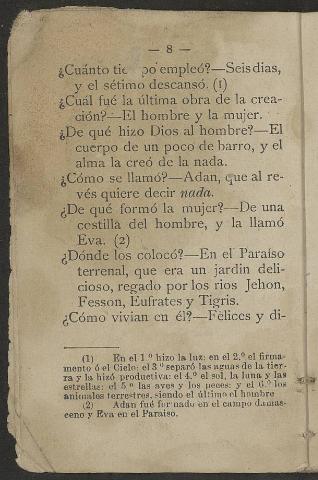 — 8 —
¿Cuánto tie po empleó?—Seis dias,
y el sétimo descansó. (1)
¿Cuál fué la última obra de la crea-
ción?—El hombre y la mujer.
¿De qué hizo Dios al hombre?—El
cuerpo de un poco de barro, y el
alma la creó de la nada.
¿Cómo se llamó?—Adan, que al re-
vés quiere decir nada.
¿De qué formó la mujer?—De una
costilla del hombre, y la llamó
Eva. (2)
¿Dónde los colocó?—En el Paraíso
terrenal, que era un jardin deli-
cioso, regado por los rios Jehon,
Fesson, Eufrates y Tigris.
¿Cómo vivian en él?—Felices y di-
(1) En el 1.º hizo la luz: en el 2.º el firma-
mento ó el Cielo: el 3.º separó las aguas de la tier-
ra y la hizó productiva: el 4.º el sol, la luna y las
estrellas: el 5.º las aves y los peces: y el 6.º los
animales terrestres, siendo el último el hombre
(2) Adan fué formado en el campo damas-
ceno y Eva en el Paraiso.